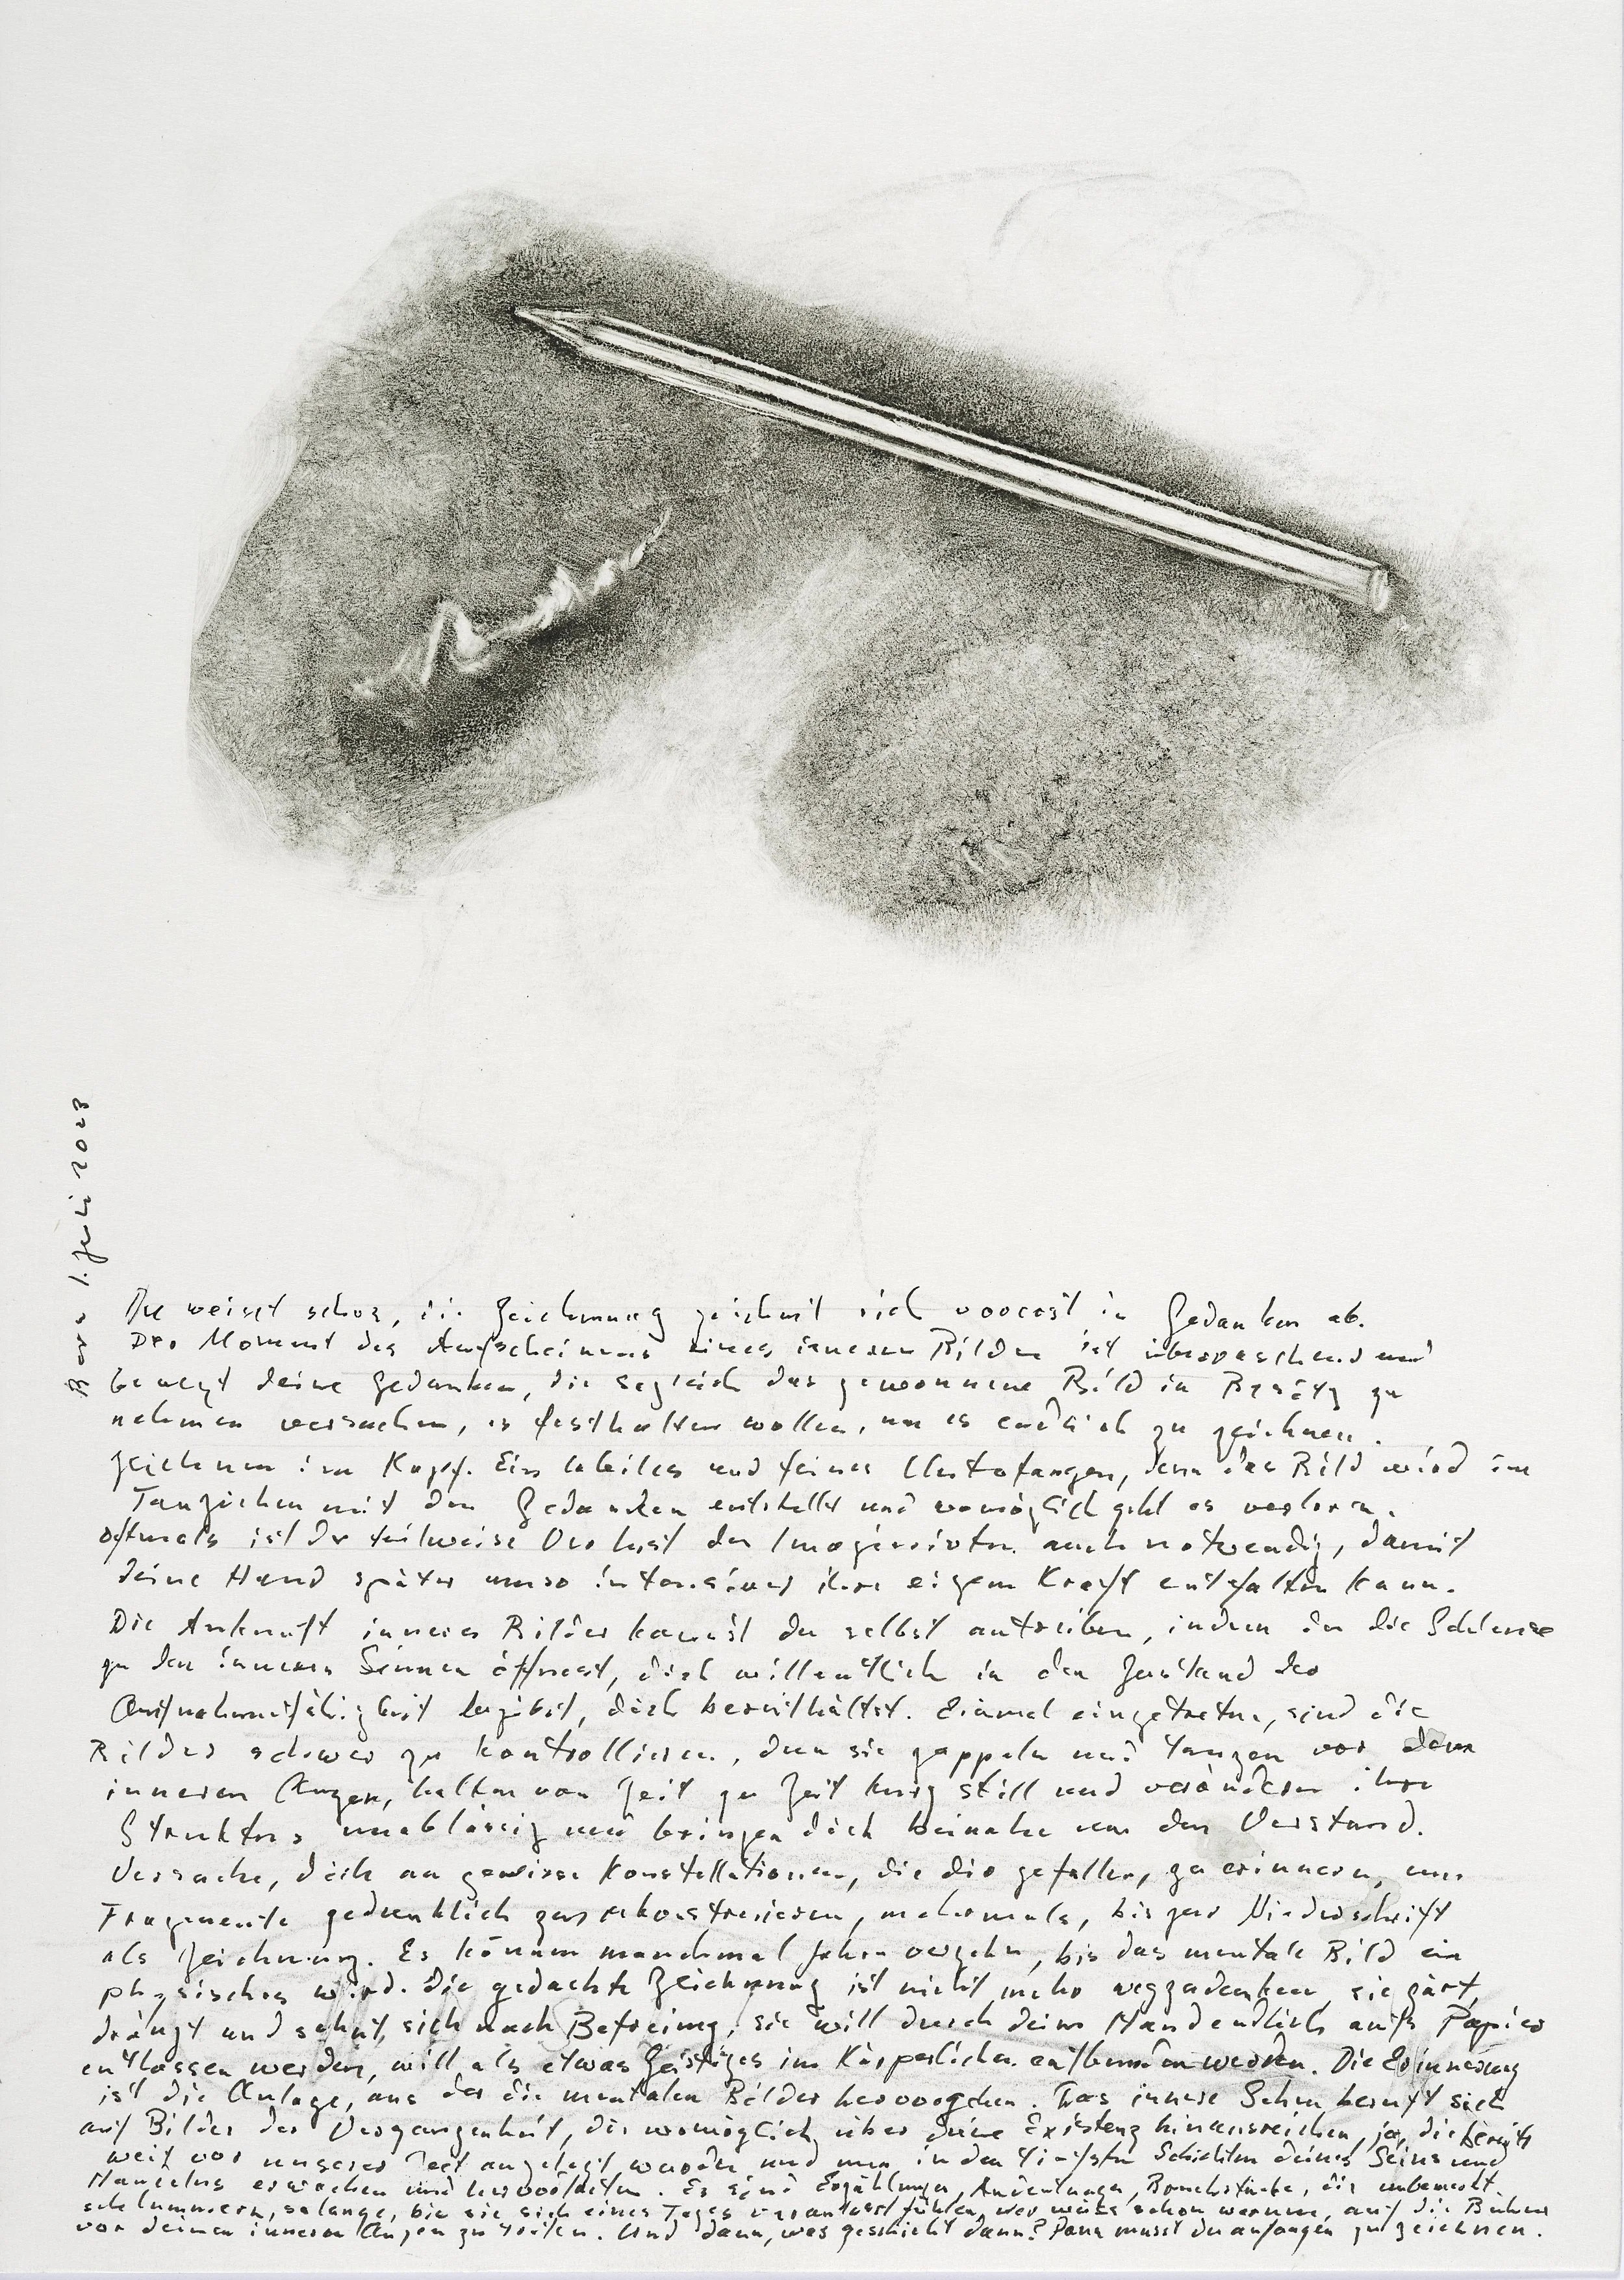 Bonn 1. Juli 2023
Du weisst schon, die Zeichnung zeichnet sich vorerst in Gedanken ab.
Der Moment des Aufscheinens eines inneren Bildes ist überraschend und
bewegt deine Gedanken, die sogleich das gewonnene Bild in Besitz zu
nehmen versuchen, es festhalten wollen, um es endlich zu zeichnen.
Zeichnen im Kopf. Ein labiles und feines Unterfangen, denn das Bild wird im
Tauziehen mit den Gedanken entstellt und womöglich geht es verloren.
Oftmals ist der teilweise Verlust des Imaginierten auch notwendig, damit
deine Hand später umso intensiver ihre eigene Kraft entfalten kann.
Die Ankunft innerer Bilder kannst du selbst antreiben, indem du die Schleuse
zu den inneren Sinnen öffnest, dich willentlich in den Zustand der
Aufnahmefähigkeit begibst, dich bereithältst. Einmal eingetreten, sind die
Bilder schwer zu kontrollieren, denn sie zappeln und tanzen vor dem
inneren Auge, halten von Zeit zu Zeit kurz still und verändern ihre
Struktur unablässig und bringen dich beinahe um den Verstand.
Versuche, dich an gewisse Konstellationen, die dir gefallen, zu erinnern, um
Fragmente gedanklich zu rekonstruieren, mehrmals, bis zur Niederschrift
als Zeichnung. Es können manchmal Jahre vergehn, bis das mentale Bild ein
physisches wird. Die gedachte Zeichnung ist nicht mehr wegzudenken, sie gärt,
drängt und sehnt sich nach Befreiung, sie will durch deine Hand endlich aufs Papier
entlassen werden, will als etwas Geistiges im Körperlichen entbunden werden. Die Erinnerung
ist die Anlage, aus der die mentalen Bilder hervorgehen. Das innere Sehen beruft sich
auf Bilder der Vergangenheit, die womöglich über deine Existenz hinausreichen, ja, die bereits
weit vor unserer Zeit angelegt wurden und nun in den tiefsten Schichten deines Seins und
Handelns erwachen und hervortreten. Es sind Erzählungen, Andeutungen, Bruchstücke, die unbemerkt
schlummern, solange, bis sie sich eines Tages veranlasst fühlen, wer weiss schon warum, auf die Bühne
vor deinen inneren Augen zu treten. Und dann, was geschieht dann? Dann musst du anfangen zu zeichnen.